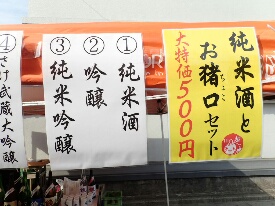 純米酒と
お猪口セット
ちょこ
大特価500円
①純米酒
②吟醸
③純米吟醸
④さけ武蔵大吟醸